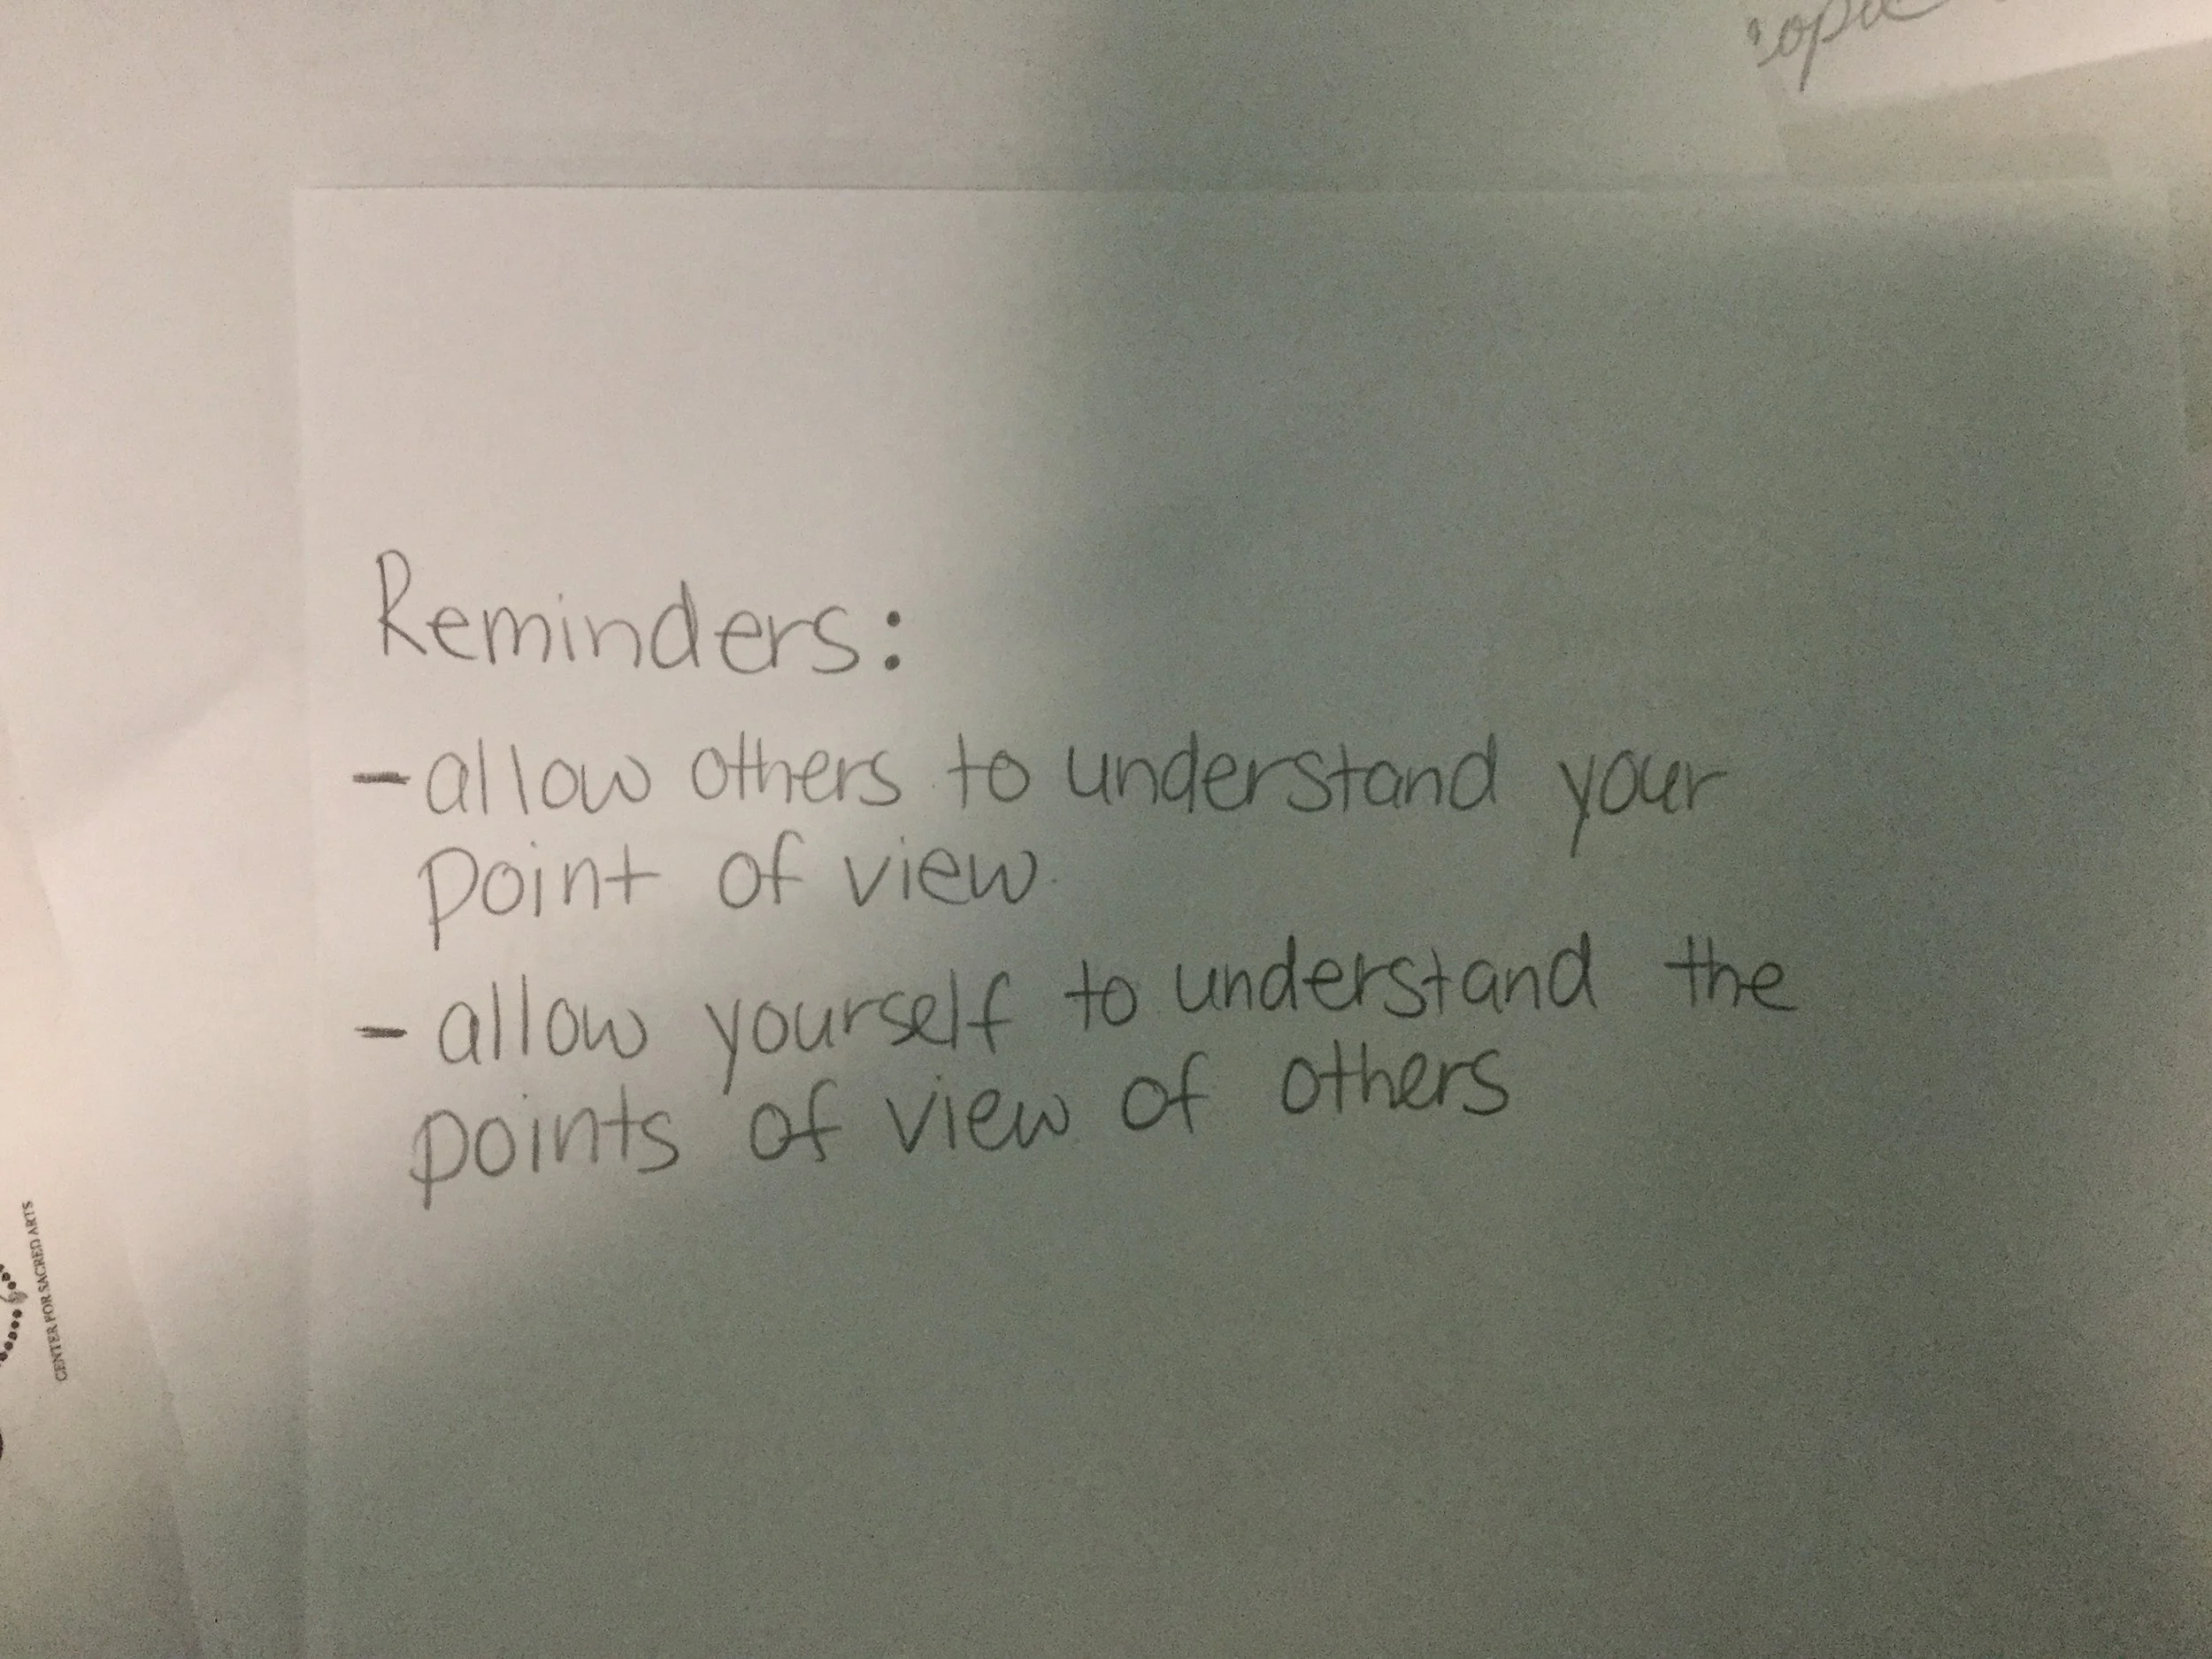 Reminders:
- allow others to understand your
point of view
- allow yourself to understand the
points of view of others
CENTER FOR SACRED ARTS